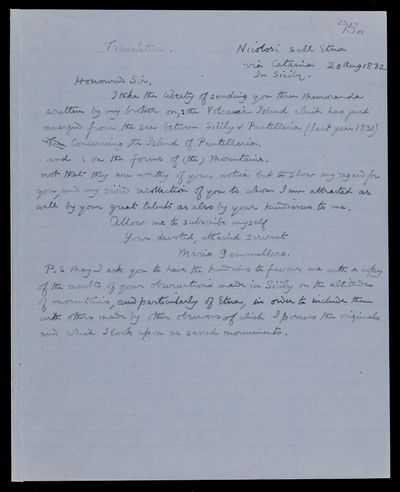 95a
Translation.
Nicolosi sull Etna
via Catania 20 Aug 1832
In Sicily.
Honoured Sir,
I take the liberty of sending you three Memoranda
written by my brother on, : the Volcanic Island which has just
emerged from the sea between Sicily & Pantelleria (last year 1831)
Concerning the Island of Pantelleria.
and : on the forms of (the) mountains.
not that they are worthy of your notice but to show my regard for
you and my vivid recollection of you to whom I am attracted as
well by your great talents as also by your kindness to me.
Allow me to subscribe myself
Your devoted, attached servant
Mario Gemmellaro.
P.S. May I ask you to have the kindness to favour me with a copy
of the results of your observations made in Sicily on the altitudes
of mountains, and particularly of Etna, in order to include them
with others made by other observers of which I possess the originals
and which I look upon as sacred monuments.